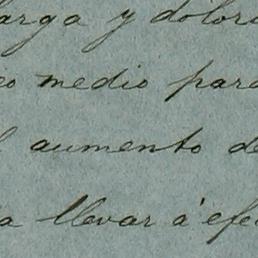 larga y dolor
eo medio para
l aumento de
a llevar á efe